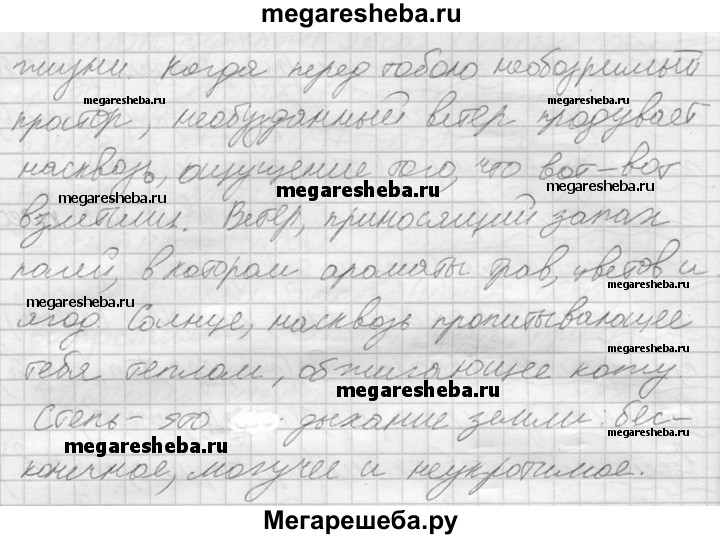 megaresheba.ru
жизни. Когда перед тобою необозримый
megaresheba.ru
megaresheba.ru
простор, необузданный ветер продувает
насквозь, ощущение того, что вот-вот
megaresheba.ru
megaresheba.ru
megaresheba.ru
взлетишь. Ветер, приносящий запах
полей, в котором ароматы трав, цветов и
megaresheba.ru
megaresheba.ru
ягод. Солнце, насквозь пропитывающее
тебя теплом, обжигающее кожу
megaresheba.ru
Степь - это дыхание земли: бес-
megaresheba.ru
megaresheba.ru
конечное, могучее и неукротимое.
Мегарешеба.ру